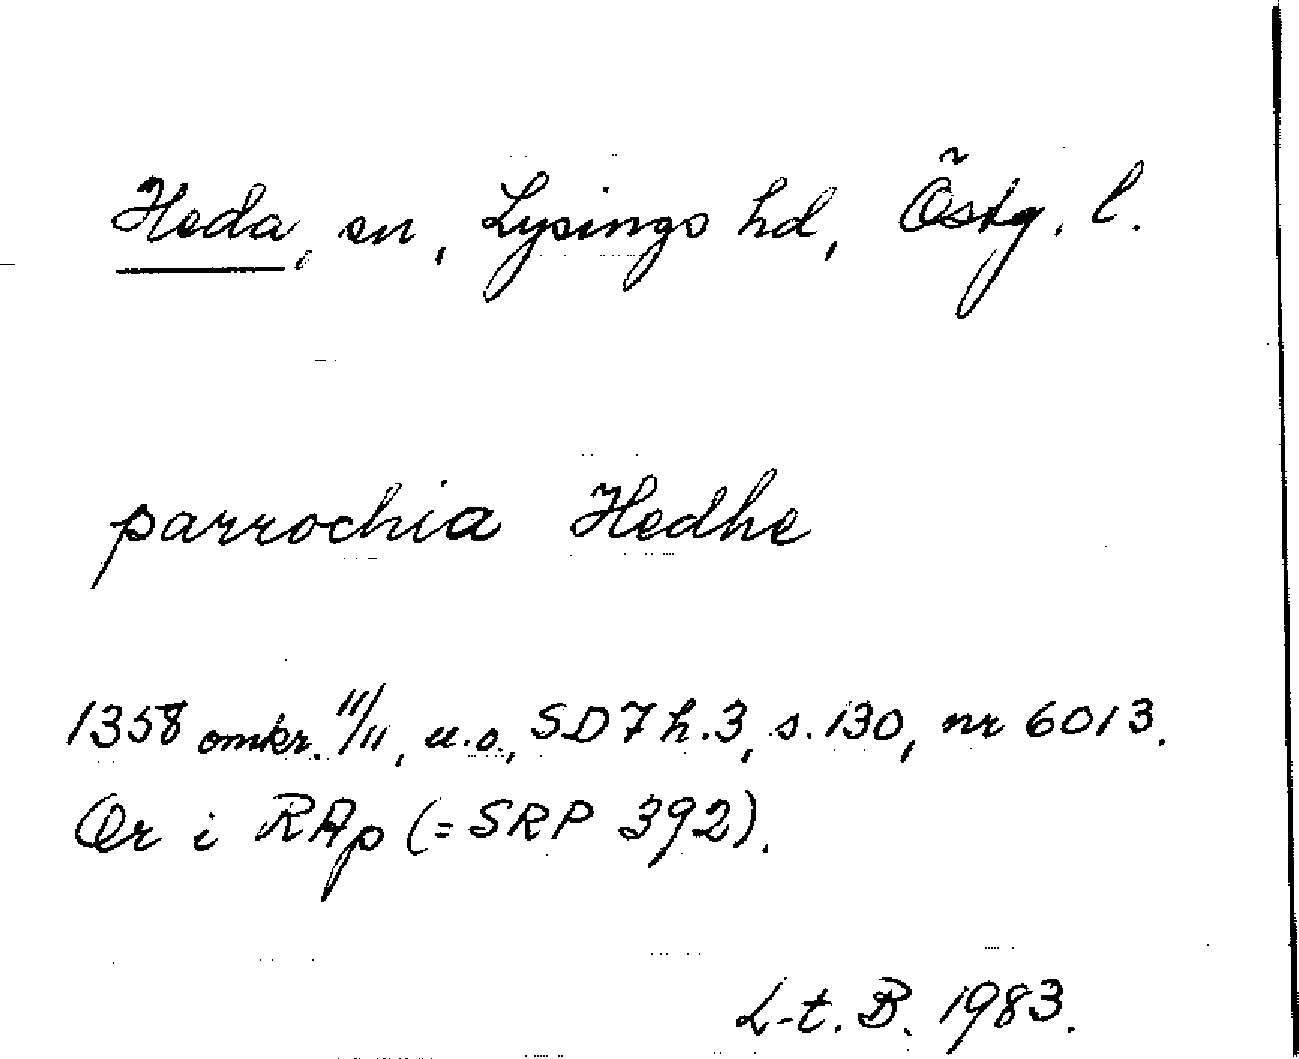 Heda, sn, Lysings hd, Östg. l.
parrochia Hedhe
1358 omkr. 11/11, u.o., SD 7 h. 3, s. 130, nr 6013.
Or i RAp (= SRP 392).
L-t. B. 1983.